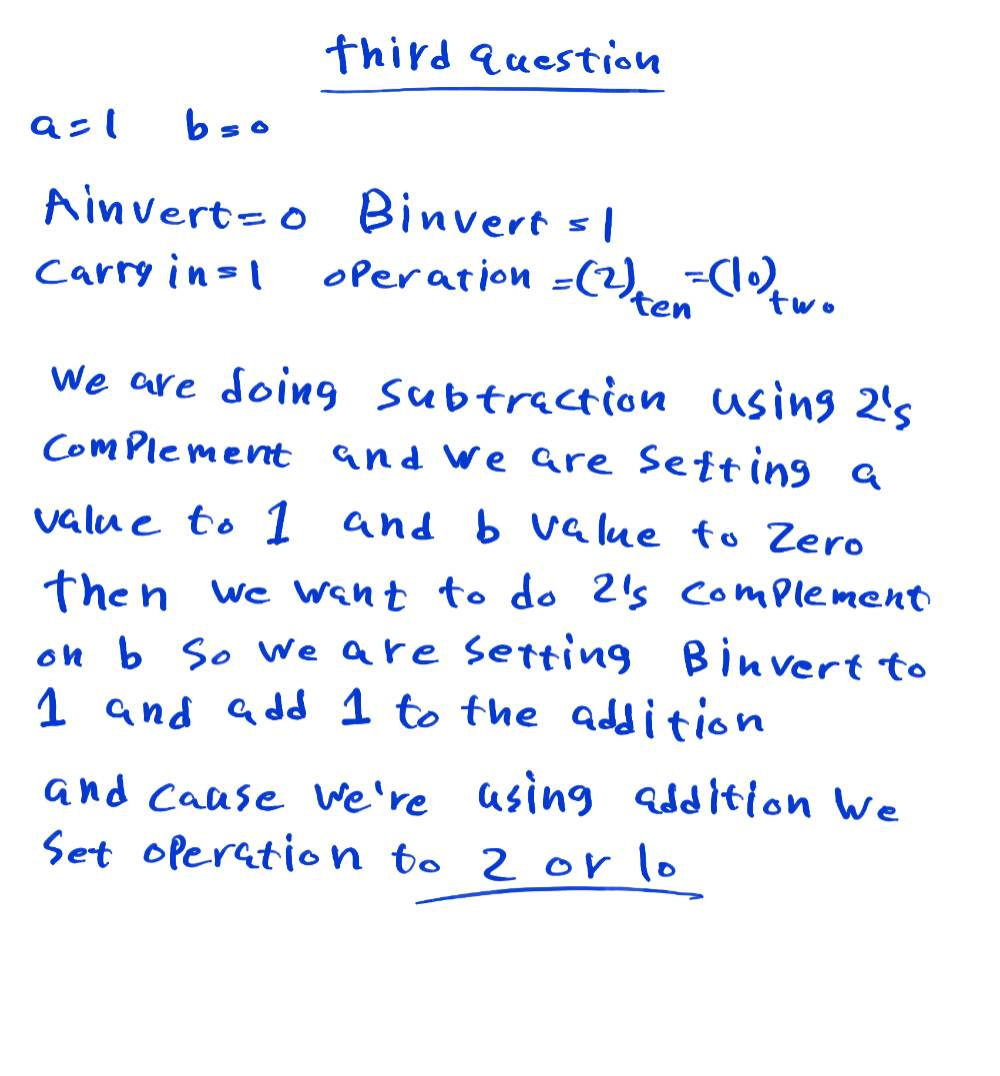 third question
a=1 b=0
Ainvert=0 Binvert=1
Carry in=1 operation=(2)ten=(10)two
We are doing subtraction using 2's
Complement and we are setting a
value to 1 and b value to zero
then we want to do 2's complement
on b so we are setting Binvert to
1 and add 1 to the addition
and cause we're using addition we
set operation to 2 or 10